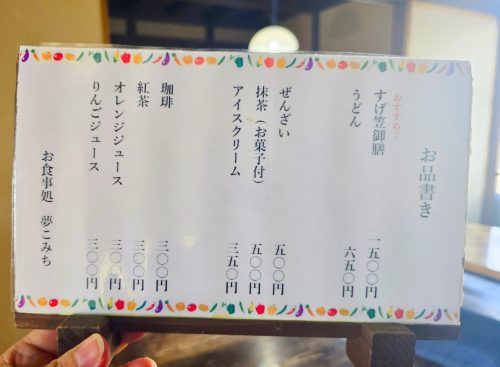 お品書き
おすすめ！
すげ笠御膳 一五〇〇円
うどん 六五〇円
ぜんざい 五〇〇円
抹茶（お菓子付） 五〇〇円
アイスクリーム 三五〇円
珈琲 三〇〇円
紅茶 三〇〇円
オレンジジュース 三〇〇円
りんごジュース 三〇〇円
お食事処 夢こみち